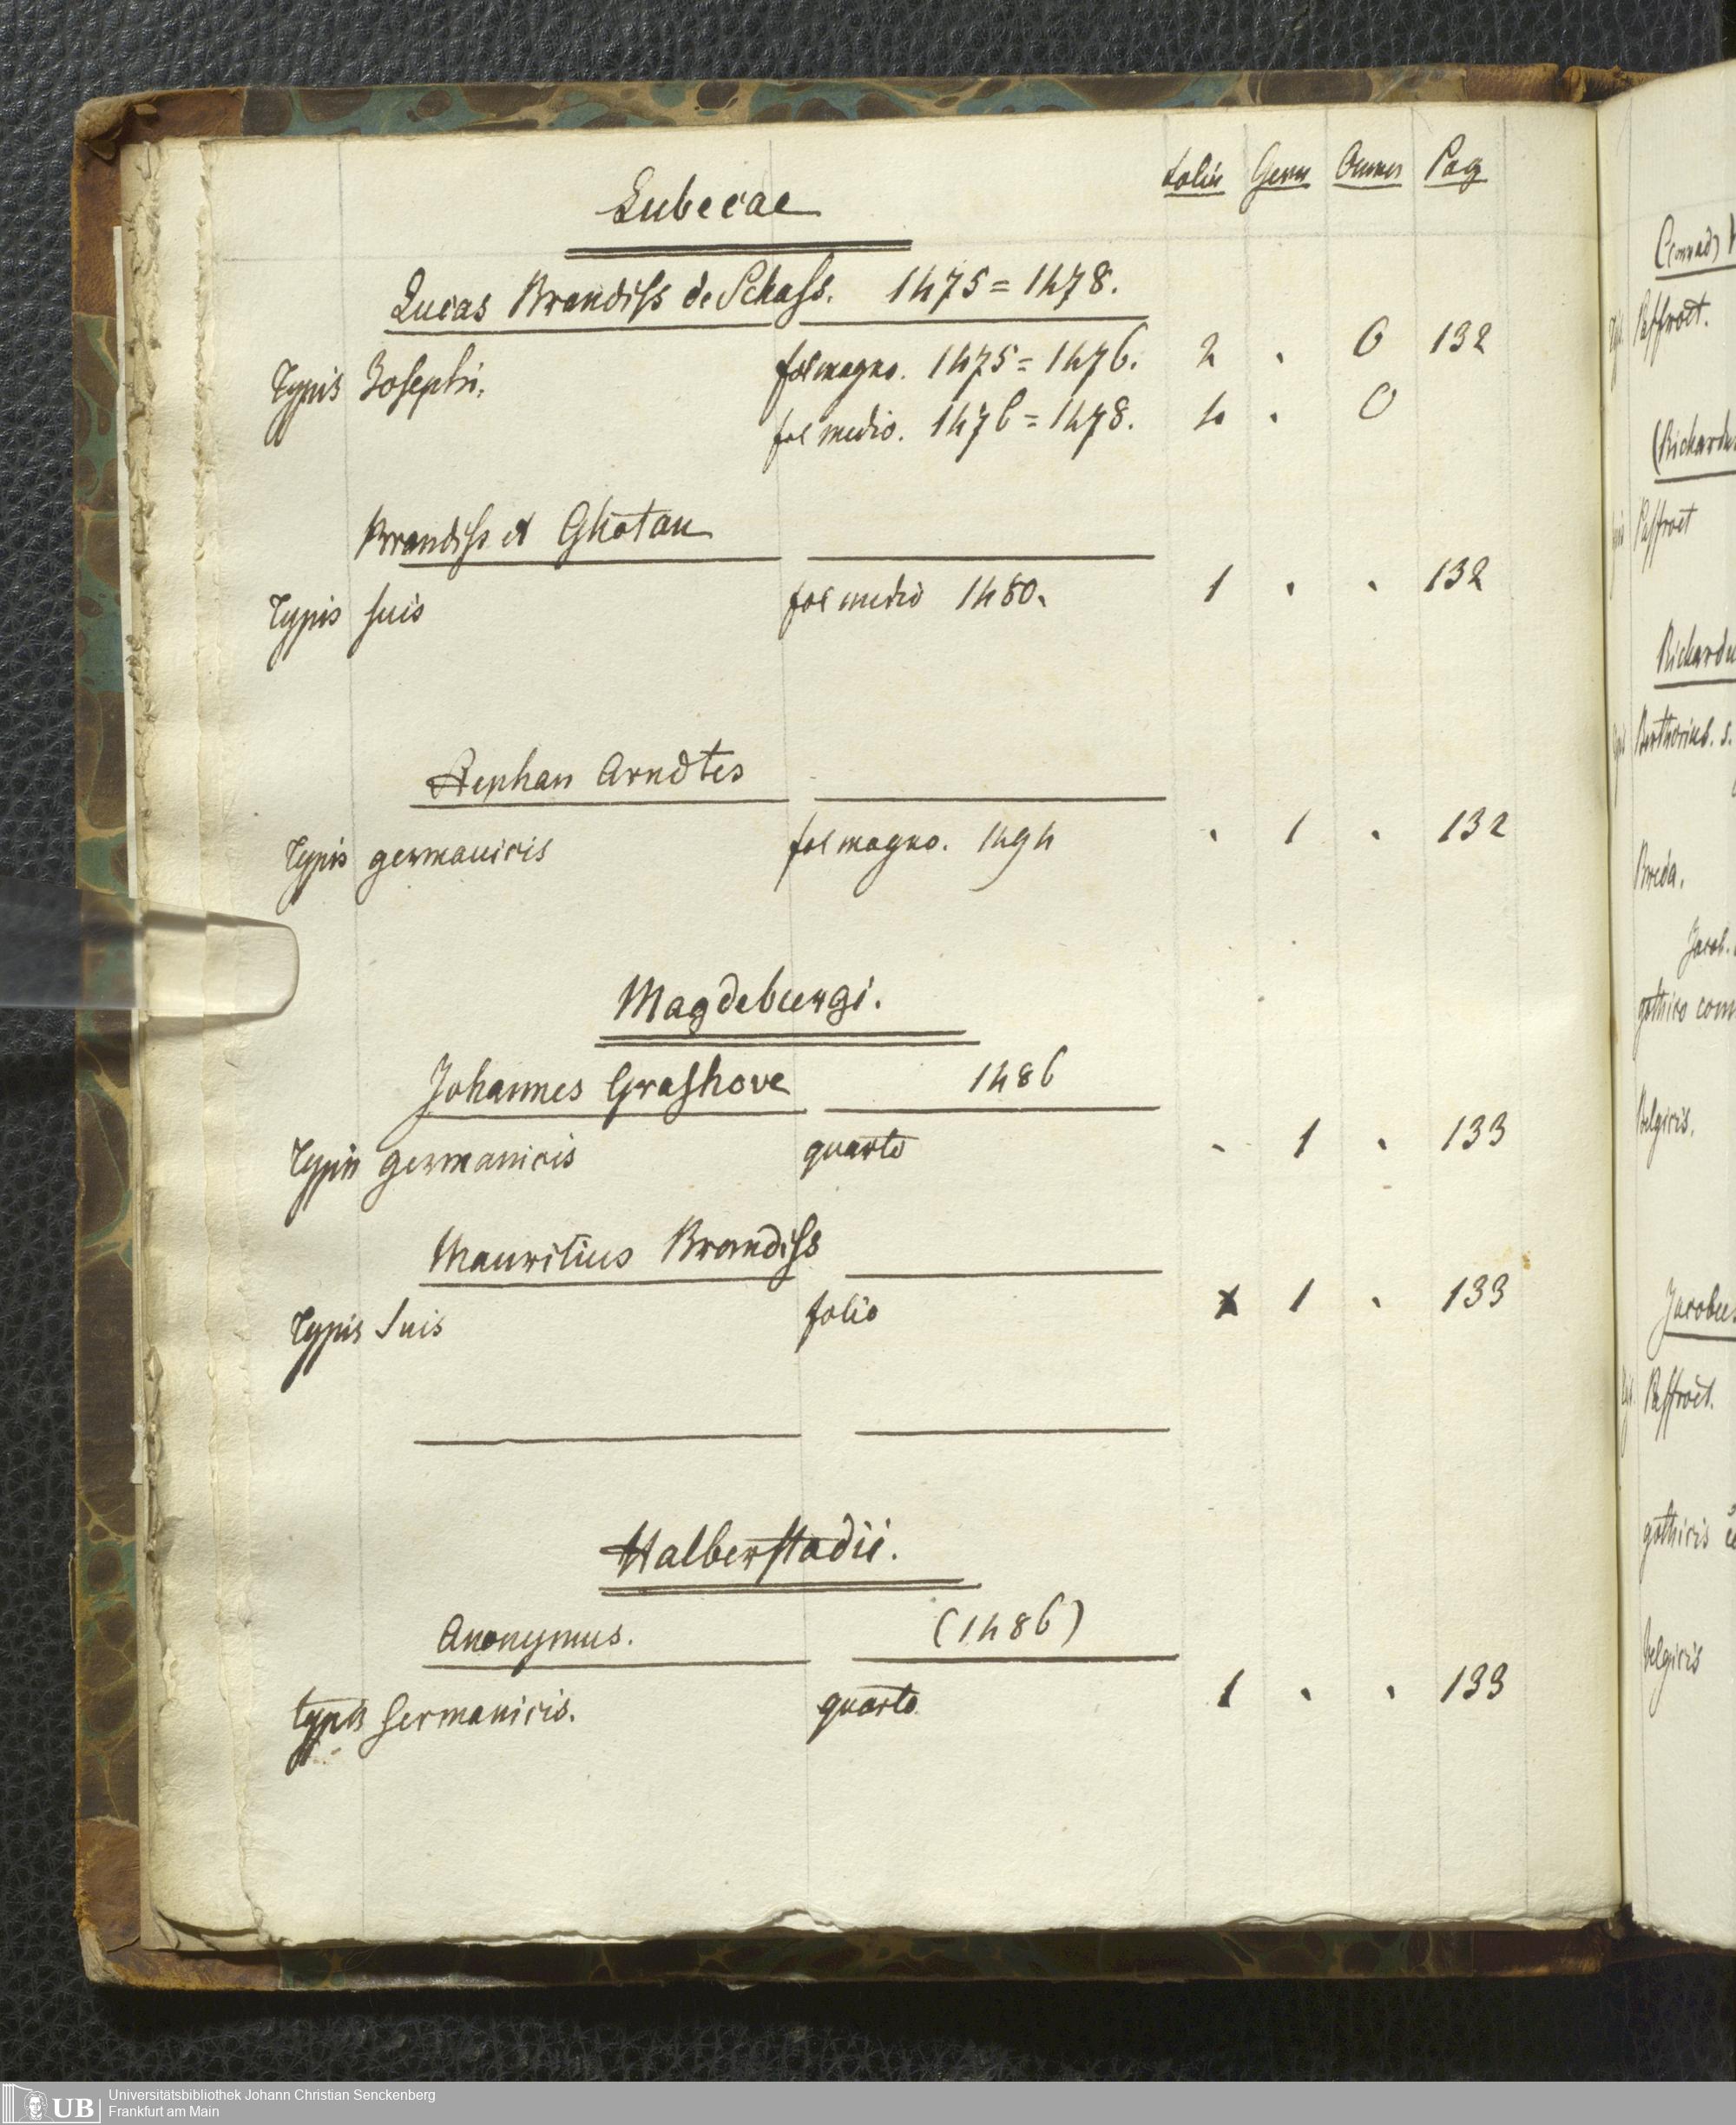 Latin Germ Omnes Pag
Lubecae
Lucas Brandiss de Schass. 1475=1478.
Typis Josephi. fol magno. 1475=1476. 2 . 0 132
fol medio. 1476=1478. . 0
Brandiss et Ghotan
Typis suis fol medio 1480. 1 . . 132
Stephan Arndtes
Typis germanicis fol magno. 1494 . 1 . 132
Magdeburgi.
Johannes Grashove 1486
Typis germanicis quarto . 1 . 133
Mauritius Brandiss
Typis Suis folio 1 . 133
Halberstadii.
Anonymus. (1486)
typis Germanicis. quarto 1 . . 133
(Conrad)
Paffroet.
(Richardus
Paffroet
Richardu
Breda.
Jacob.
gothico com
Belgicis.
Jacobus
Paffroet.
gothicis
belgicis
UB Universitätsbibliothek Johann Christian Senckenberg
Frankfurt am Main